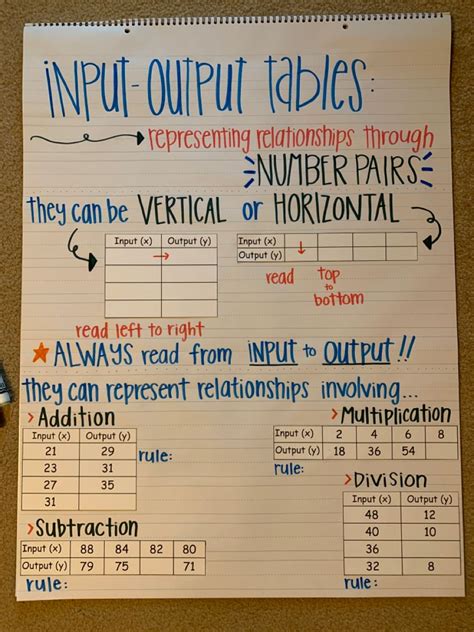 input-output tables:
representing relationships through
NUMBER PAIRS
they can be VERTICAL or HORIZONTAL
Input (x) Output (y)
Input (x)
Output (y)
read top
to
bottom
read left to right
ALWAYS read from input to output!!
they can represent relationships involving...
>Addition
Input (x) Output (y)
21 29
23 31
27 35
31
rule:
>Multiplication
Input (x) 2 4 6 8
Output (y) 18 36 54
rule:
>Subtraction
Input (x) 88 84 82 80
Output (y) 79 75 71
rule:
>Division
Input (x) Output (y)
48 12
40 10
36
32 8
rule: